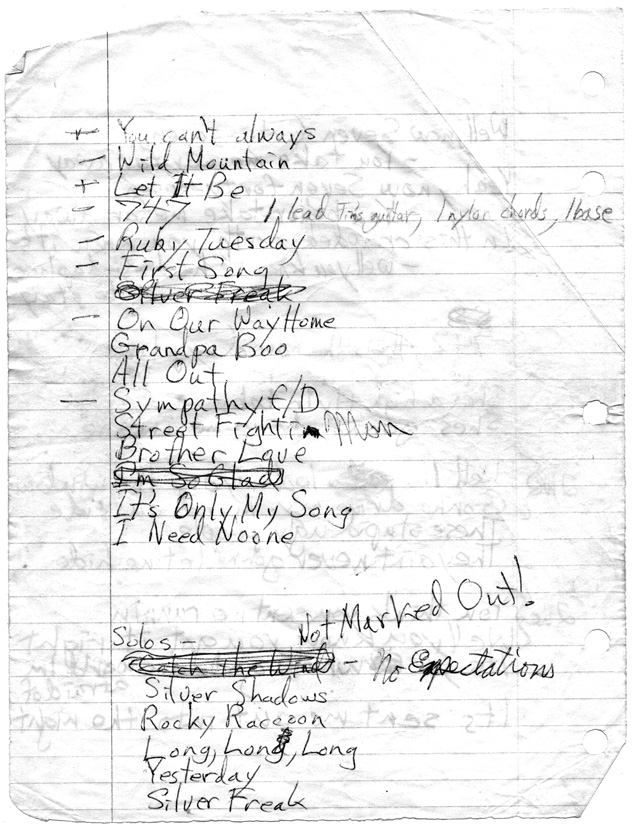 + You can't always
- Wild Mountain
+ Let It Be
- 747 1, lead Tim's guitar, 1 nylor chords, 1 base
- Ruby Tuesday
- First Song
Silver Freak
- On Our Way Home
Grandpa Boo
All Out
- Sympathy E/D
Street Fightin Man
Brother Love
I'm So Glad
It's Only My Song
I Need Noone
Not Marked Out!
Solos -
Catch the Wind - No Expectations
Silver Shadows
Rocky Raccoon
Long, Long, Long
Yesterday
Silver Freak